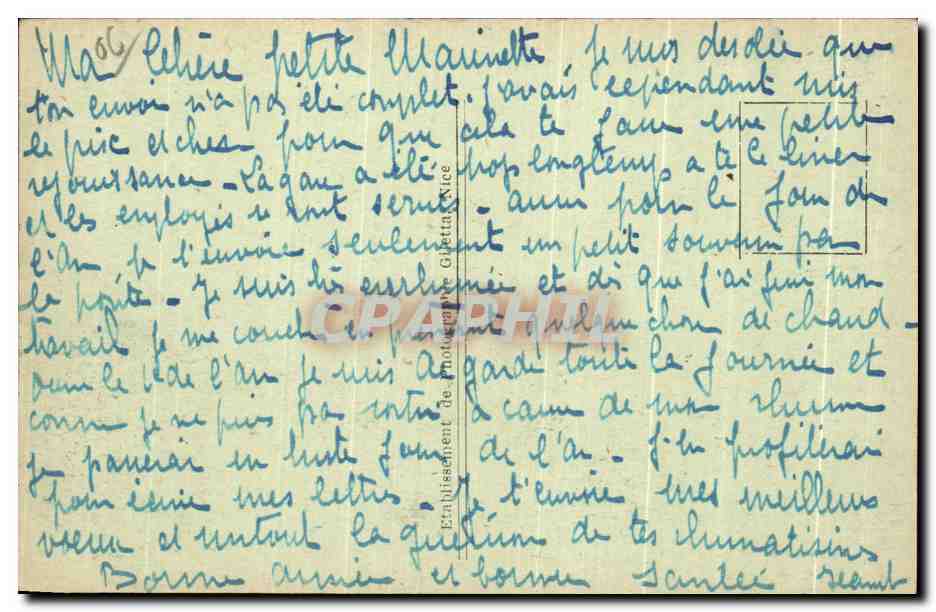 06
Ma Chère petite Marinette, je suis desolée que
ton envoi n'a pas été complet. J'avais cependant mis
le prix et cher pour que cela te fasse une petite
rejouissance - La gare a été trop longtemps a te le livrer
et les employés se sont servis. aussi pour le Jour de
l'An je t'envoie seulement un petit souvenir par
la poste - Je suis très enrhumée et dès que j'ai fini mon
travail je me couche en prenant quelque chose de chaud -
le 1er de l'An je suis de garde toute la journée et
comme je ne puis pas sortir a cause de mon rhume
je passerai un triste Jour de l'An. J'en profiterai
pour écrire mes lettres - Je t'envoie mes meilleurs
voeux et surtout la guérison de tes rhumatismes
Bonne année et bonne santée
Etablissement de Photographie Giletta, Nice
CPARAMA